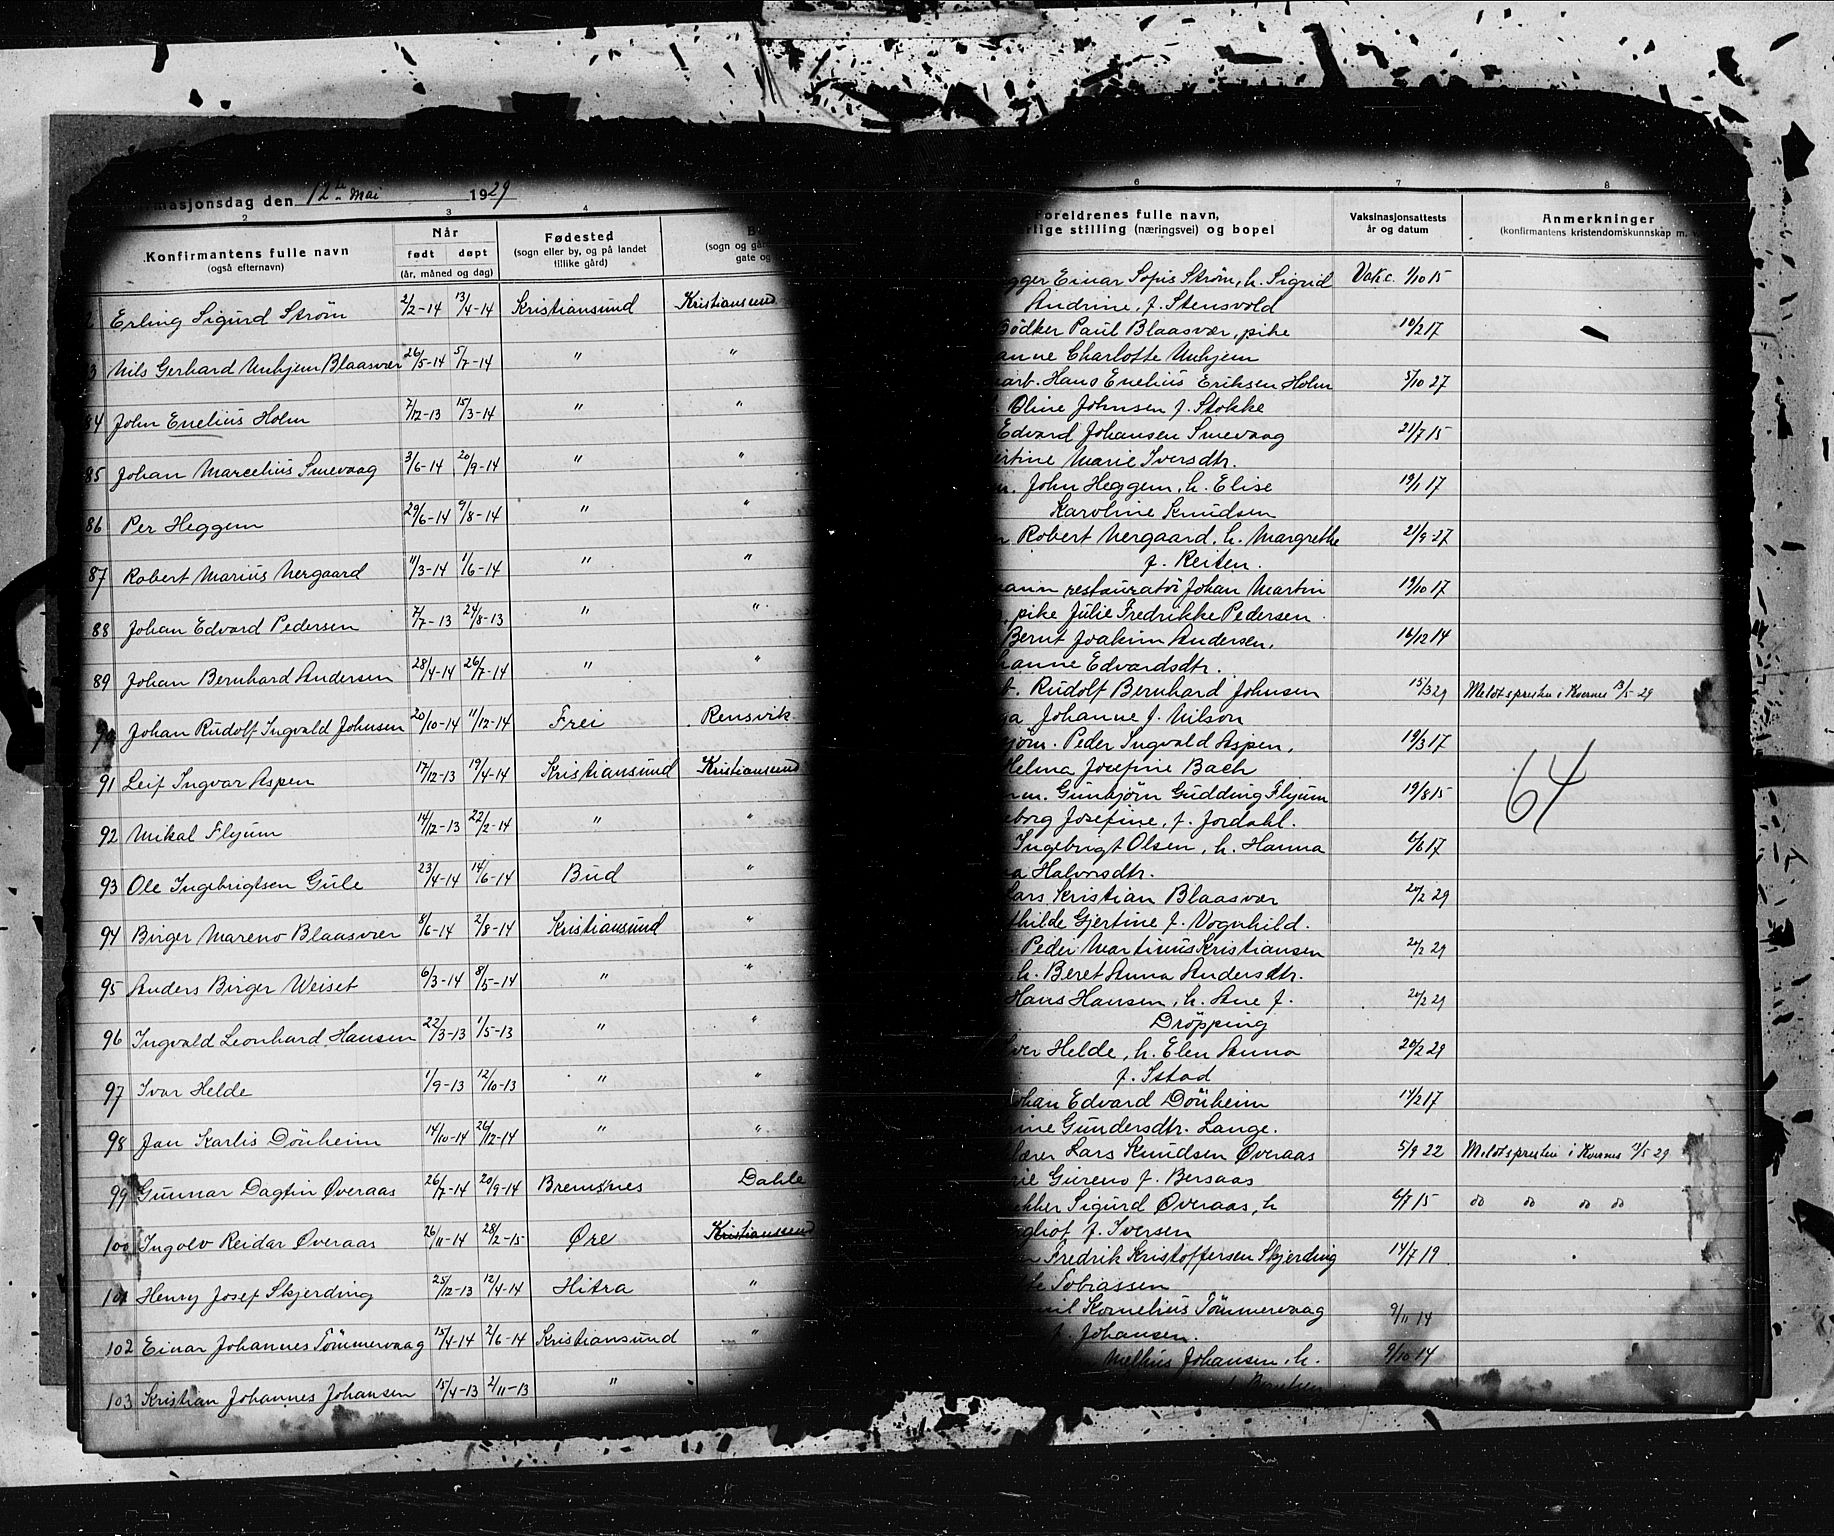 masjonsdag den 12te Mai 1929
2 3 4
Konfirmantens fulle navn
(også efternavn)
Når
født døpt
(år, måned og dag)
Fødested
(sogn eller by, og på landet
tillike gård)
(sogn og gå
gate og
2 Erling Sigurd Strøm 2/2-14 13/4-14 Kristiansund Kristiansund
3 Nils Gerhard Unhjem Blaasvær 26/5-14 5/7-14 " "
84 John Enelius Holm 7/12-13 15/3-14 " "
85 Johan Marcelius Smevaag 3/6-14 20/9-14 " "
86 Per Heggem 29/6-14 9/8-14 " "
87 Robert Marius Nergaard 11/3-14 1/6-14 " "
88 Johan Edvard Pedersen 7/7-13 24/8-13 " "
89 Johan Bernhard Andersen 28/4-14 26/7-14 " "
90 Johan Rudolf Ingvald Johnsen 20/10-14 11/12-14 Frei Rensvik
91 Leif Ingvar Aspen 17/12-13 19/4-14 Kristiansund Kristiansund
92 Mikal Flyum 14/12-13 22/2-14 " "
93 Ole Ingebrigtsen Gule 23/4-14 14/6-14 Bud "
94 Birger Mareno Blaasvær 8/6-14 2/8-14 Kristiansund "
95 Anders Birger Weiset 6/3-14 8/5-14 " "
96 Ingvald Leonhard Hansen 22/3-13 1/5-13 " "
97 Ivar Helde 1/9-13 12/10-13 " "
98 Jan Karlis Dönheim 14/10-14 26/12-14 " "
99 Gunnar Dagfin Øveraas 26/7-14 20/9-14 Bremsnes Dahle
100 Ingolv Reidar Øveraas 26/11-14 28/2-15 Øre Kristiansund
101 Henry Josef Skjerding 25/12-13 12/4-14 Hitra "
102 Einar Johannes Tömmervaag 15/4-14 2/6-14 Kristiansund "
103 Kristian Johannes Johansen 15/4-13 2/11-13 "
6 7 8
Foreldrenes fulle navn,
rlige stilling (næringsvei) og bopel
Vaksinasjonsattests
år og datum
Anmerkninger
(konfirmantens kristendomskunnskap m. v.
gger Einar Sofus Strøm, h. Sigrid Vakc. 1/10 15
Andrine, f. Stensvold
Bödker Paul Blaasvær, pike 10/2 17
anne Charlotte Unhjem
arb. Hans Enelius Eriksen Holm 5/10 27
Oline Johnsen f. Stokke
Edvard Johansen Smevaag 21/7 15
rtine Marie Iversdtr.
m. John Heggem, h. Elise 19/1 17
Karoline Knudsen
Robert Nergaard, h. Margrethe 21/9 27
f. Reiten.
ann restauratör Johan Martin 19/10 17
pike Julie Fredrikke Pedersen
Bernt Joakim Andersen, 16/12 14
hanne Edvardsdtr.
b. Rudolf Bernhard Johnsen 15/3 29 Meldt spresten i Kvernes 13/5-29
ga Johanne f. Nilson
jörn. Peder Ingvald Aspen, 19/3 17
Helma Josefine Bach
64
m. Gunbjörn Gudding Flyum 19/8 15
eborg Josefine, f. Jordahl.
Ingebrigt Olsen, h. Hanna 6/6 17
na Halvorsdtr.
Lars Kristian Blaasvær 20/2 29
thilde Gjertine f. Vognhild.
Peder Martinus Kristiansen 20/2 29
h. Beret Anna Andersdtr.
Hans Hansen, h. Ane f. 20/2 29
Dröpping
Iver Helde, h. Elen Anna 20/2 29
f. Istad
ohan Edvard Dönheim 14/2 17
rine Gundersdtr. Lange.
lærer Lars Knudsen Øveraas 5/9 22 Meldt spresten i Kvernes 13/5 29
rie Gureno f. Bersaas
kker Sigurd Øveraas, h 6/7 15 do do do do
gliot f. Iversen
n Fredrik Kristoffersen Skjerding 14/7 19
Tobiassen
mil Kornelius Tömmervaag 9/11 14
f. Johansen.
Melhus Johansen, h. 9/10 14